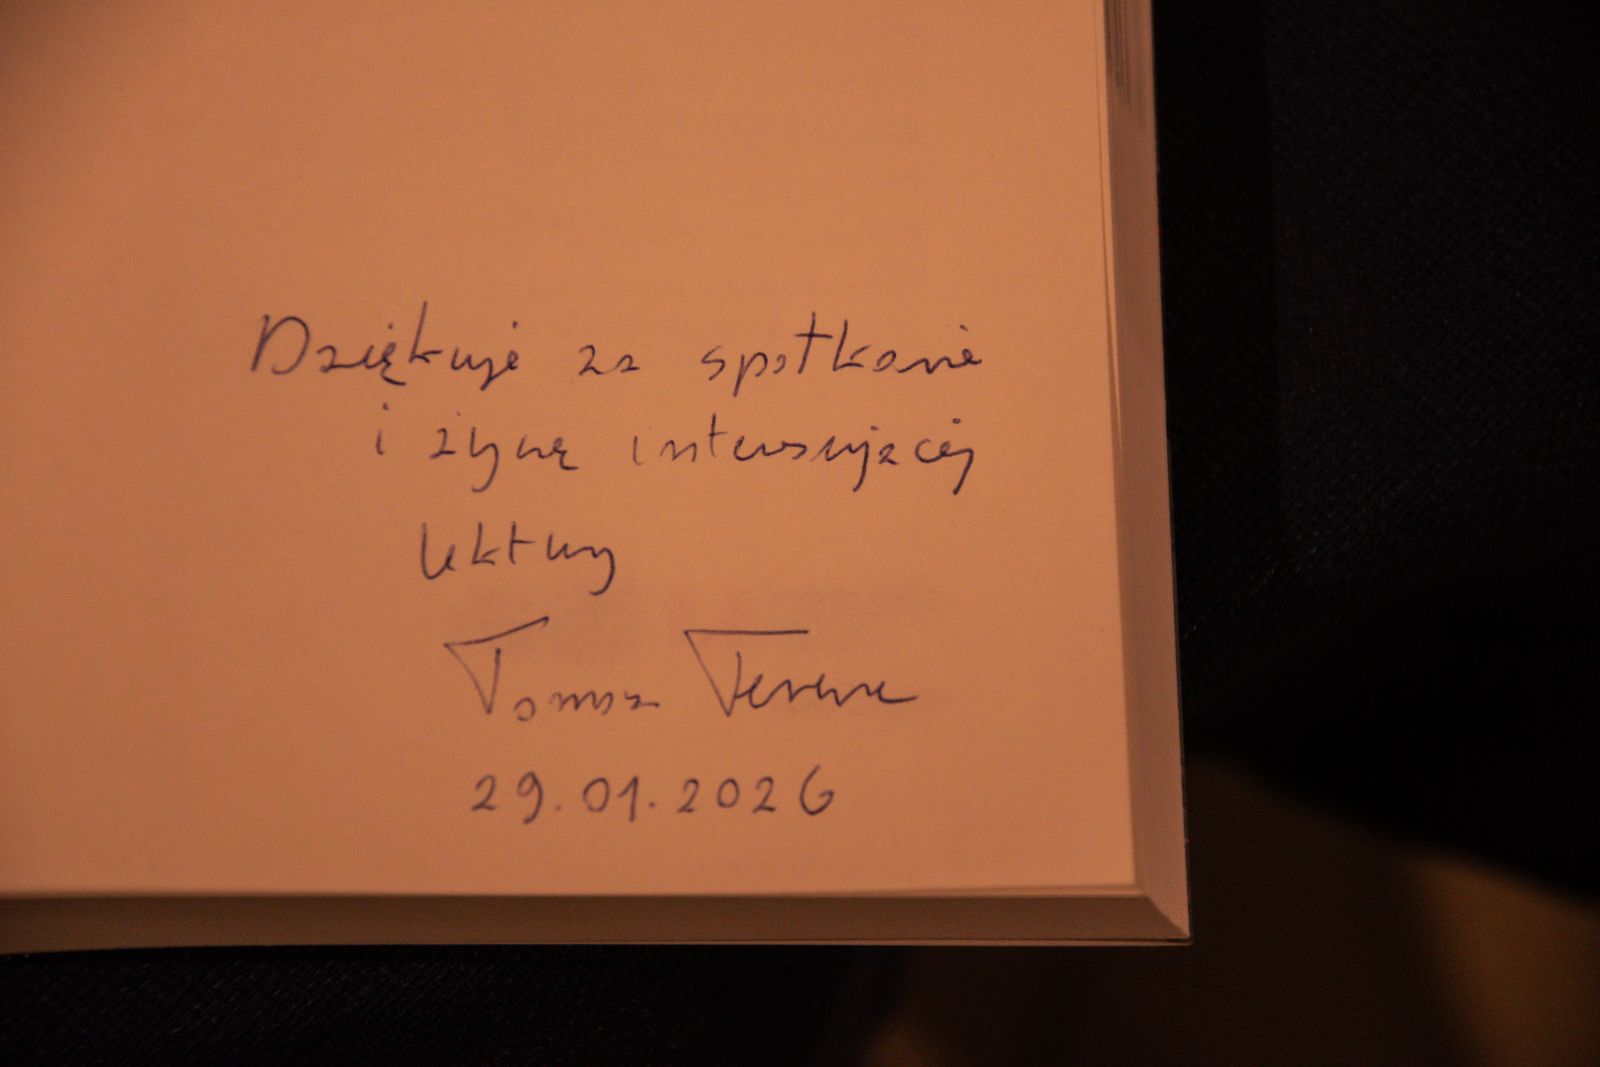 Dziękuję za spotkanie
i życzę interesującej
lektury
Tomasz Terene
29.01.2026